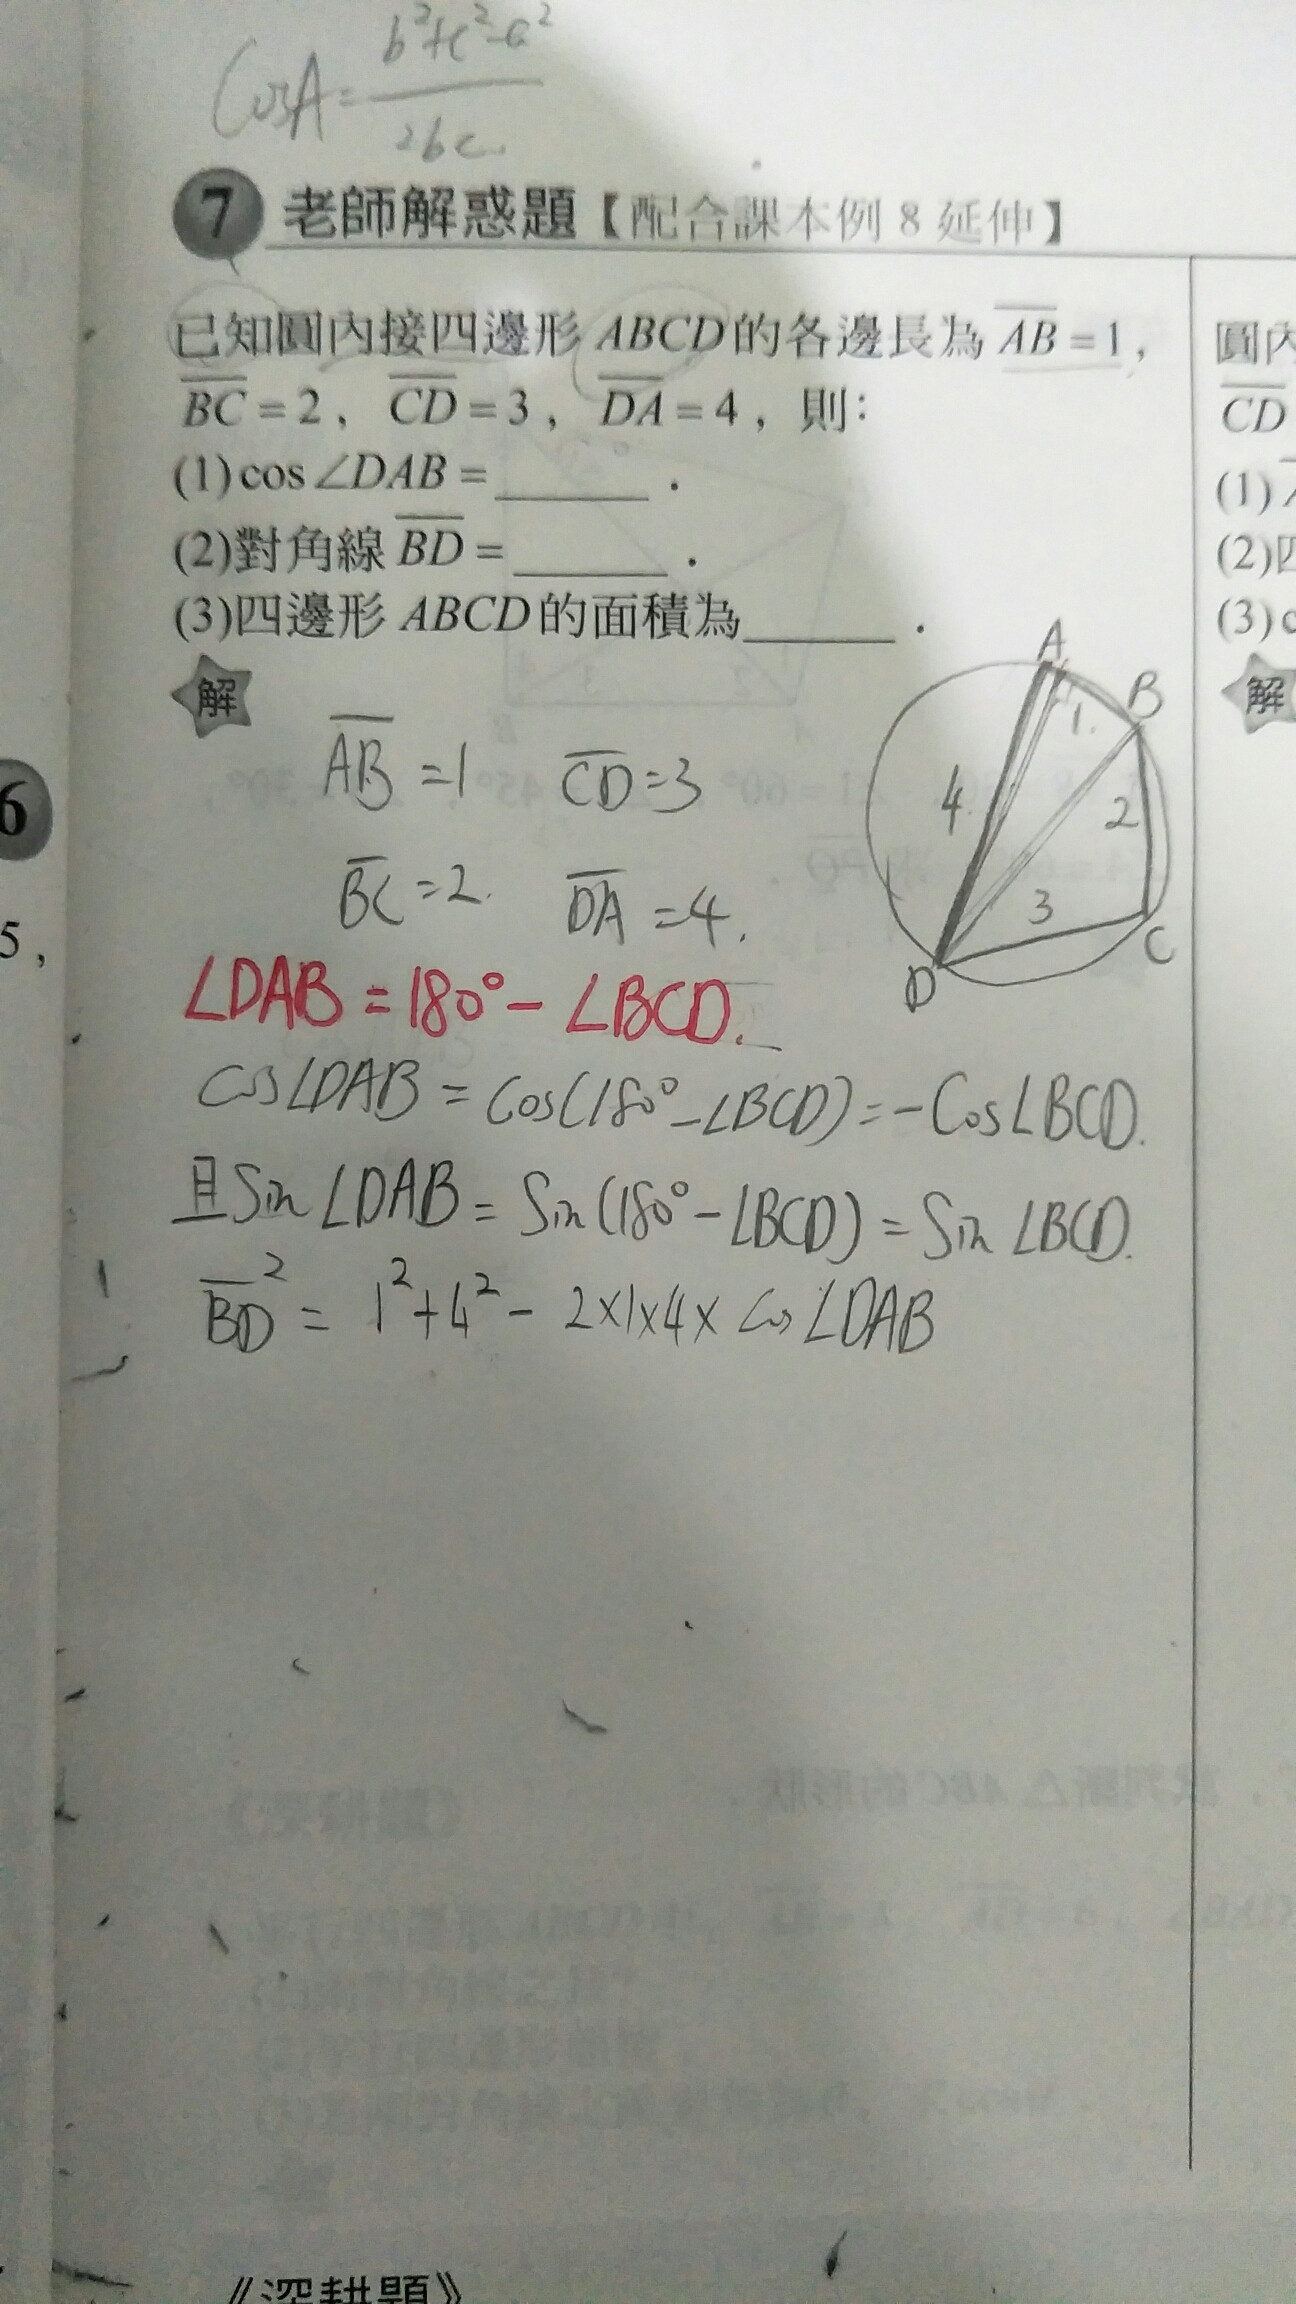 CosA = b²+c²-a² / 2bc.
7 老師解惑題【配合課本例 8 延伸】
已知圓內接四邊形 ABCD 的各邊長為 AB = 1,
BC = 2, CD = 3, DA = 4, 則:
(1) cos∠DAB = ______ .
(2)對角線 BD = ______ .
(3)四邊形 ABCD 的面積為______ .
解
AB = 1 CD = 3
BC = 2. DA = 4.
A
B
1.
4.
2
3
C
D
∠DAB = 180° - ∠BCD.
cos∠DAB = Cos(180° - ∠BCD) = -Cos∠BCD.
且Sin ∠DAB = Sin(180° - ∠BCD) = Sin ∠BCD.
BD² = 1² + 4² - 2×1×4× Cos ∠DAB
6
5,
圓內
CD
(1)
(2)
(3)
解
《深耕題》